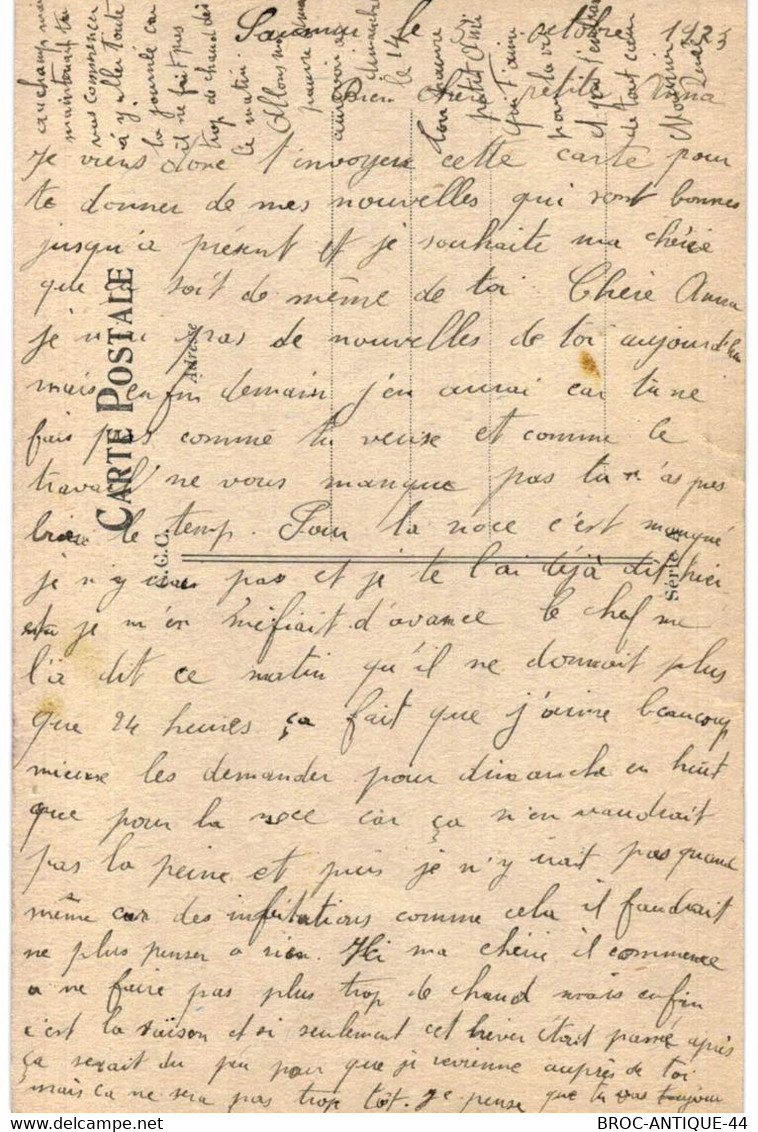 Saumur le octobre 1923
Bien chère petite Anna
Je viens donc t'envoyer cette carte pour
te donner de mes nouvelles qui sont bonnes
jusqu'a présent et je souhaite ma chérie
que soit de même de toi Chère Anna
je n'ai pas de nouvelles de toi aujourd'hui
mais enfin demain j'en aurai car tu ne
fais pas comme tu veux et comme le
travail ne vous manque pas tu n'as pas
le temp. Pour la noce c'est manqué
je n'y pas et je te l'ai déjà dit
je m'en méfiait d'avance le chef me
l'a dit ce matin qu'il ne donnait plus
que 24 heures ça fait que j'aime beaucoup
mieux les demander pour dimanche en huit
que pour la noce car ça n'en vaudrait
pas la peine et puis je n'y irait pas quand
même car des infitations comme cela il faudrait
ne plus penser a rien. Ici ma chérie il commence
a ne faire pas plus trop de chaud mais enfin
c'est la saison et si seulement cet hiver était passé après
ça serait du peu pour que je revienne auprès de toi
mais ça ne sera pas trop tôt. Je pense que tu vas toujour
au champ mais
maintenant tu
vas commencer
à y aller toute
la journée car
il ne fait pas
trop de chaud dès
le matin.
Allons ma
pauvre
au revoir a
dimanche
le 14
Ton pauvre
petit Ami
qui t'aime
pour la vie
et qui
de tout cœur
CARTE POSTALE
Adresse
C.C.C.
Série
BROC-ANTIQUE-44